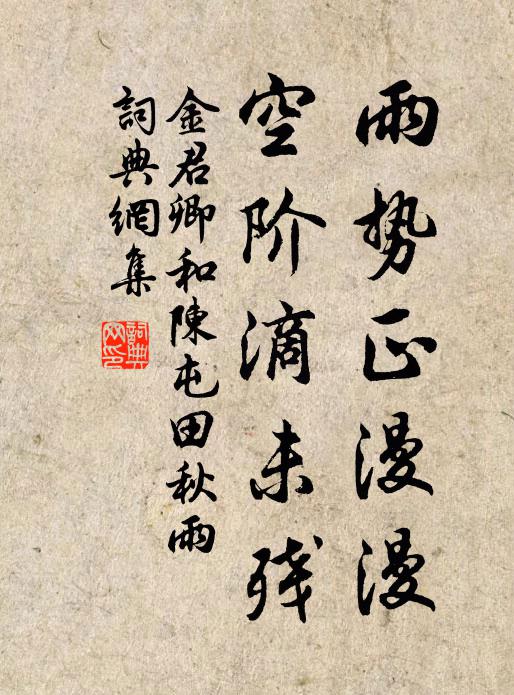 雨势正漫漫
空阶滴未残
金君卿和陳屯田秋雨
詞典網集
詞典网印